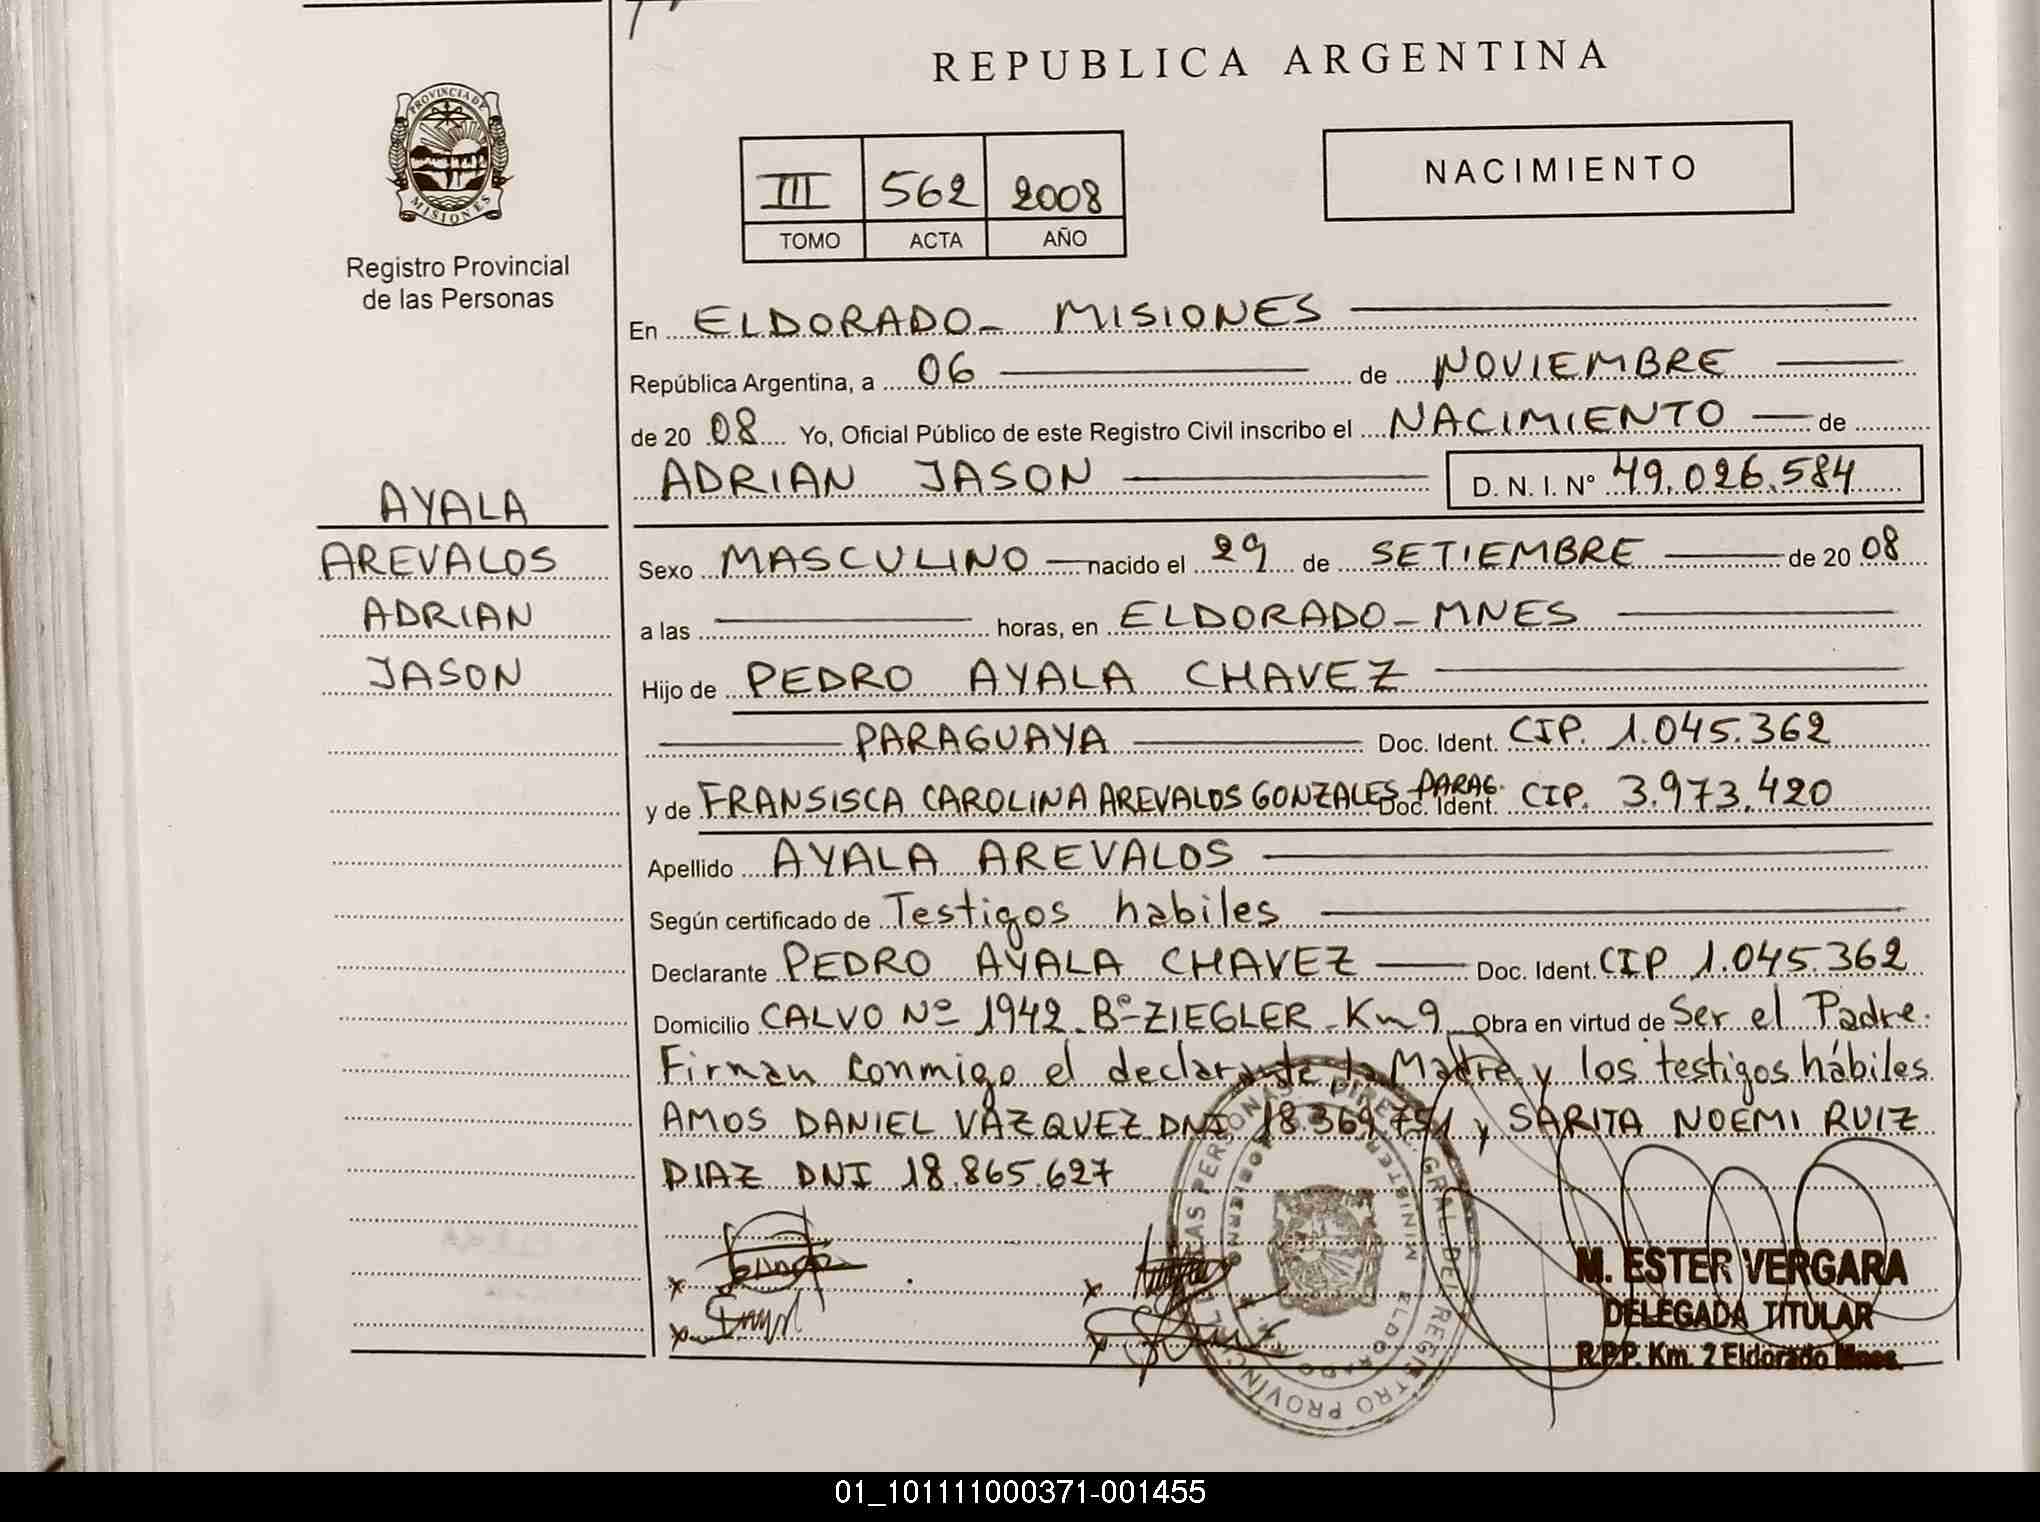 REPUBLICA ARGENTINA
PROVINCIA DE
MISIONES
Registro Provincial
de las Personas
NACIMIENTO
III 562 2008
TOMO ACTA AÑO
En ELDORADO - MISIONES
República Argentina, a 06 de NOVIEMBRE
de 20 08 Yo, Oficial Público de este Registro Civil inscribo el NACIMIENTO de
ADRIAN JASON D. N. I. N° 49.026.584
AYALA
AREVALOS
ADRIAN
JASON
Sexo MASCULINO nacido el 29 de SETIEMBRE de 20 08
a las horas, en ELDORADO - MNES
Hijo de PEDRO AYALA CHAVEZ
PARAGUAYA Doc. Ident. CIP. 1.045.362
y de FRANSISCA CAROLINA AREVALOS GONZALES PARAG. Doc. Ident. CIP. 3.973.420
Apellido AYALA AREVALOS
Según certificado de Testigos habiles
Declarante PEDRO AYALA CHAVEZ Doc. Ident. CIP 1.045.362
Domicilio CALVO Nº 1942 - Bº ZIEGLER - Km 9 Obra en virtud de Ser el Padre.
Firman conmigo el declarante, la Madre y los testigos hábiles
AMOS DANIEL VAZQUEZ DNI 18.369.751 y SARITA NOEMI RUIZ
DIAZ DNI 18.865.627
M. ESTER VERGARA
DELEGADA TITULAR
R.P.P. Km. 2 Eldorado Mnes.
01_101111000371-001455